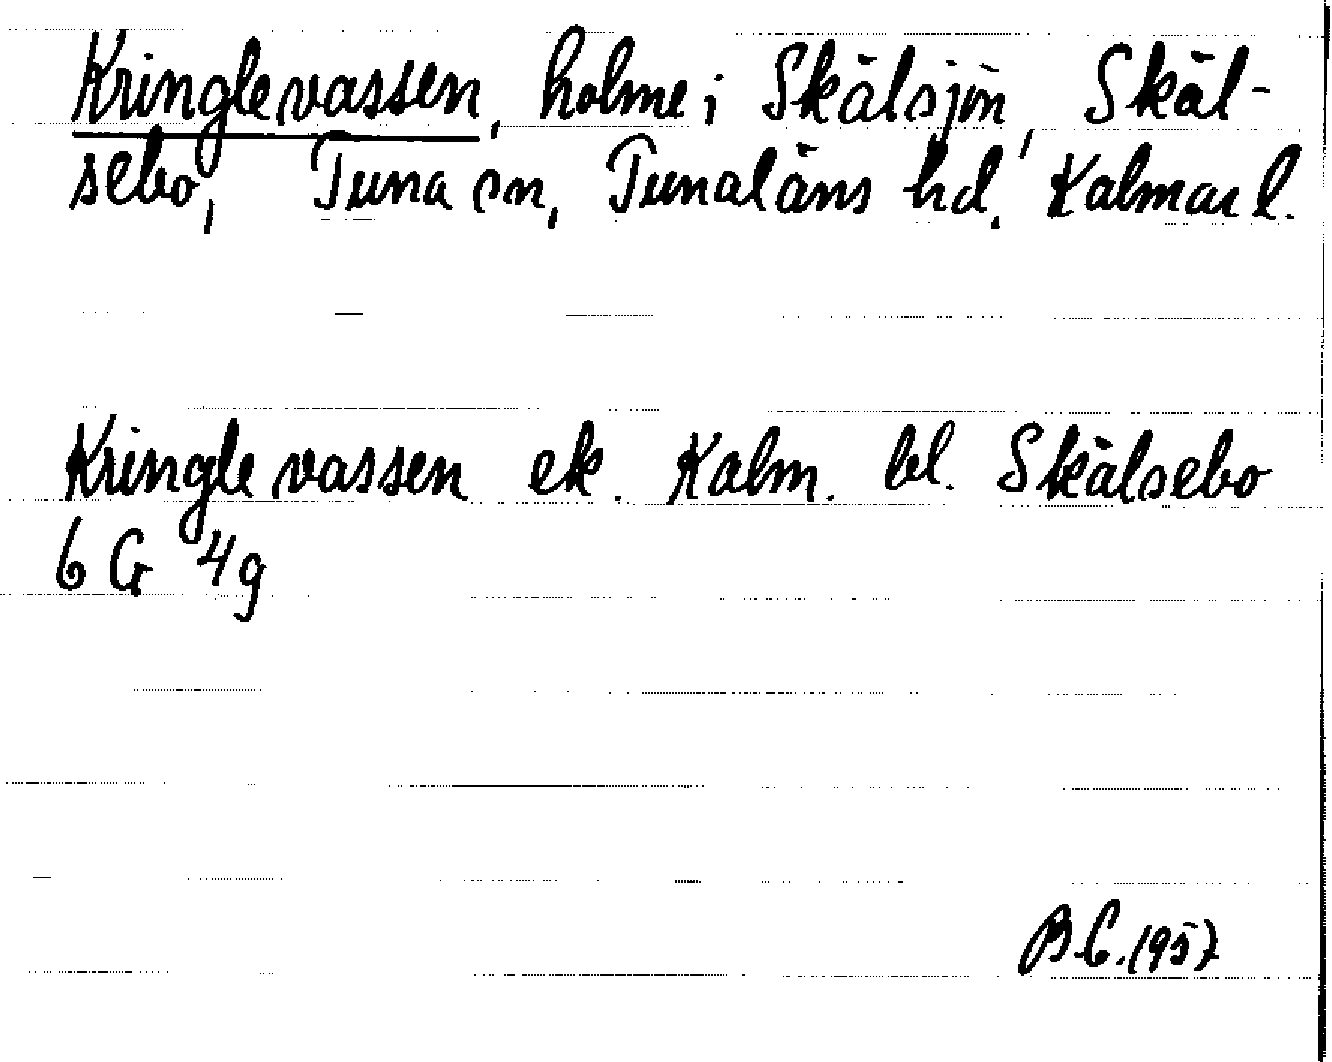 Kringlevassen, holme i Skälsjön, Skäl-
sebo, Tuna sn, Tunaläns hd, Kalmar l.
Kringlevassen ek. Kalm. bl. Skälsebo
6 G 4g
B.C. 1957